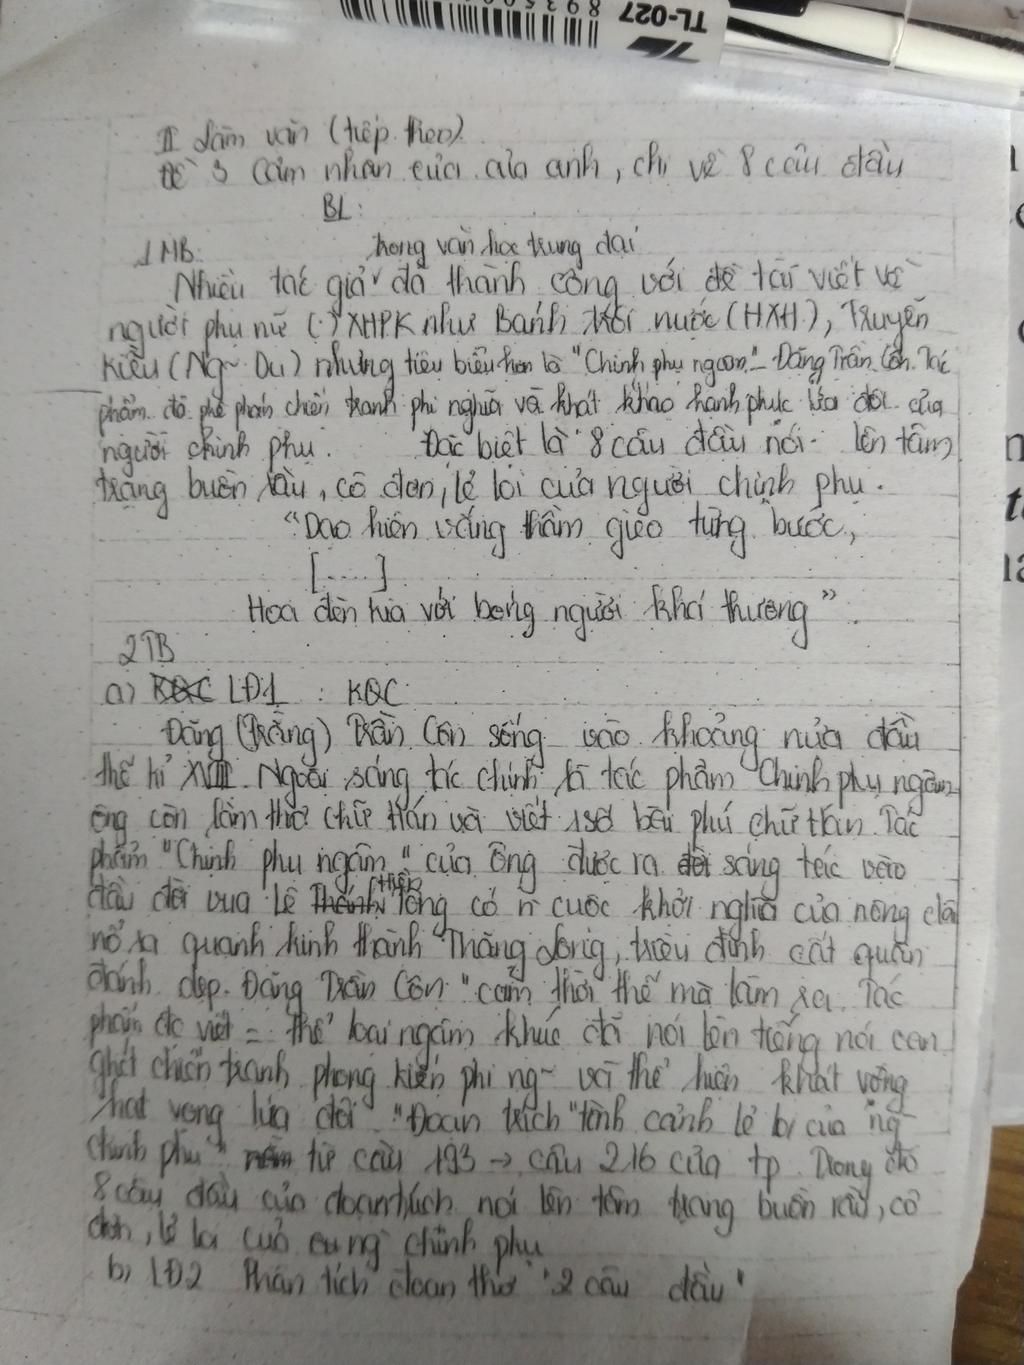 TL-027
II Làm văn (tiếp theo)
Đề 3 Cảm nhận của của anh, chị về 8 câu đầu
BL:
1 MB: trong văn học trung đại
Nhiều tác giả đã thành công với đề tài viết về
người phụ nữ (.) XHPK như Bánh trôi nước (HXH), Truyện
Kiều (Ng~ Du) nhưng tiêu biểu hơn là "Chinh phụ ngâm" - Đặng Trần Côn. Tác
phẩm đã phê phán chiến tranh phi nghĩa và khát khao hạnh phúc lứa đôi của
người chinh phụ. Đặc biệt là 8 câu đầu nói lên tâm
trạng buồn rầu, cô đơn, lẻ loi của người chinh phụ.
"Dạo hiên vắng thầm gieo từng bước,
[.....]
Hoa đèn kia với bóng người khá thương".
2 TB
a) LĐ1 : KQC
Đặng (Trằng) Trần Côn sống vào khoảng nửa đầu
thế kỉ XVIII. Ngoài sáng tác chính là tác phẩm "Chinh phụ ngâm"
ông còn làm thơ chữ Hán và viết 1 số bài phú chữ Hán. Tác
phẩm "Chinh phụ ngâm" của ông được ra sáng tác vào
đầu đời vua Lê Hiển Tông có n~ cuộc khởi nghĩa của nông dâ
nổ ra quanh kinh thành Thăng Long, triều đình cất quân
đánh dẹp. Đặng Trần Côn "cảm thời thế mà làm ra. Tác
phẩm đc viết = thể loại ngâm khúc đã nói lên tiếng nói oan
ghét chiến tranh phong kiến phi ng~ và thể hiện khát vọng
hạt vọng lứa đôi. "Đoạn trích "tình cảnh lẻ loi của ng~
chinh phụ" từ câu 193 → câu 216 của tp. Trong đó
8 câu đầu của đoạn trích nói lên tâm trạng buồn rầu, cô
đơn, lẻ loi của chinh phụ
b) LĐ2 Phân tích đoạn thơ "2 câu đầu"